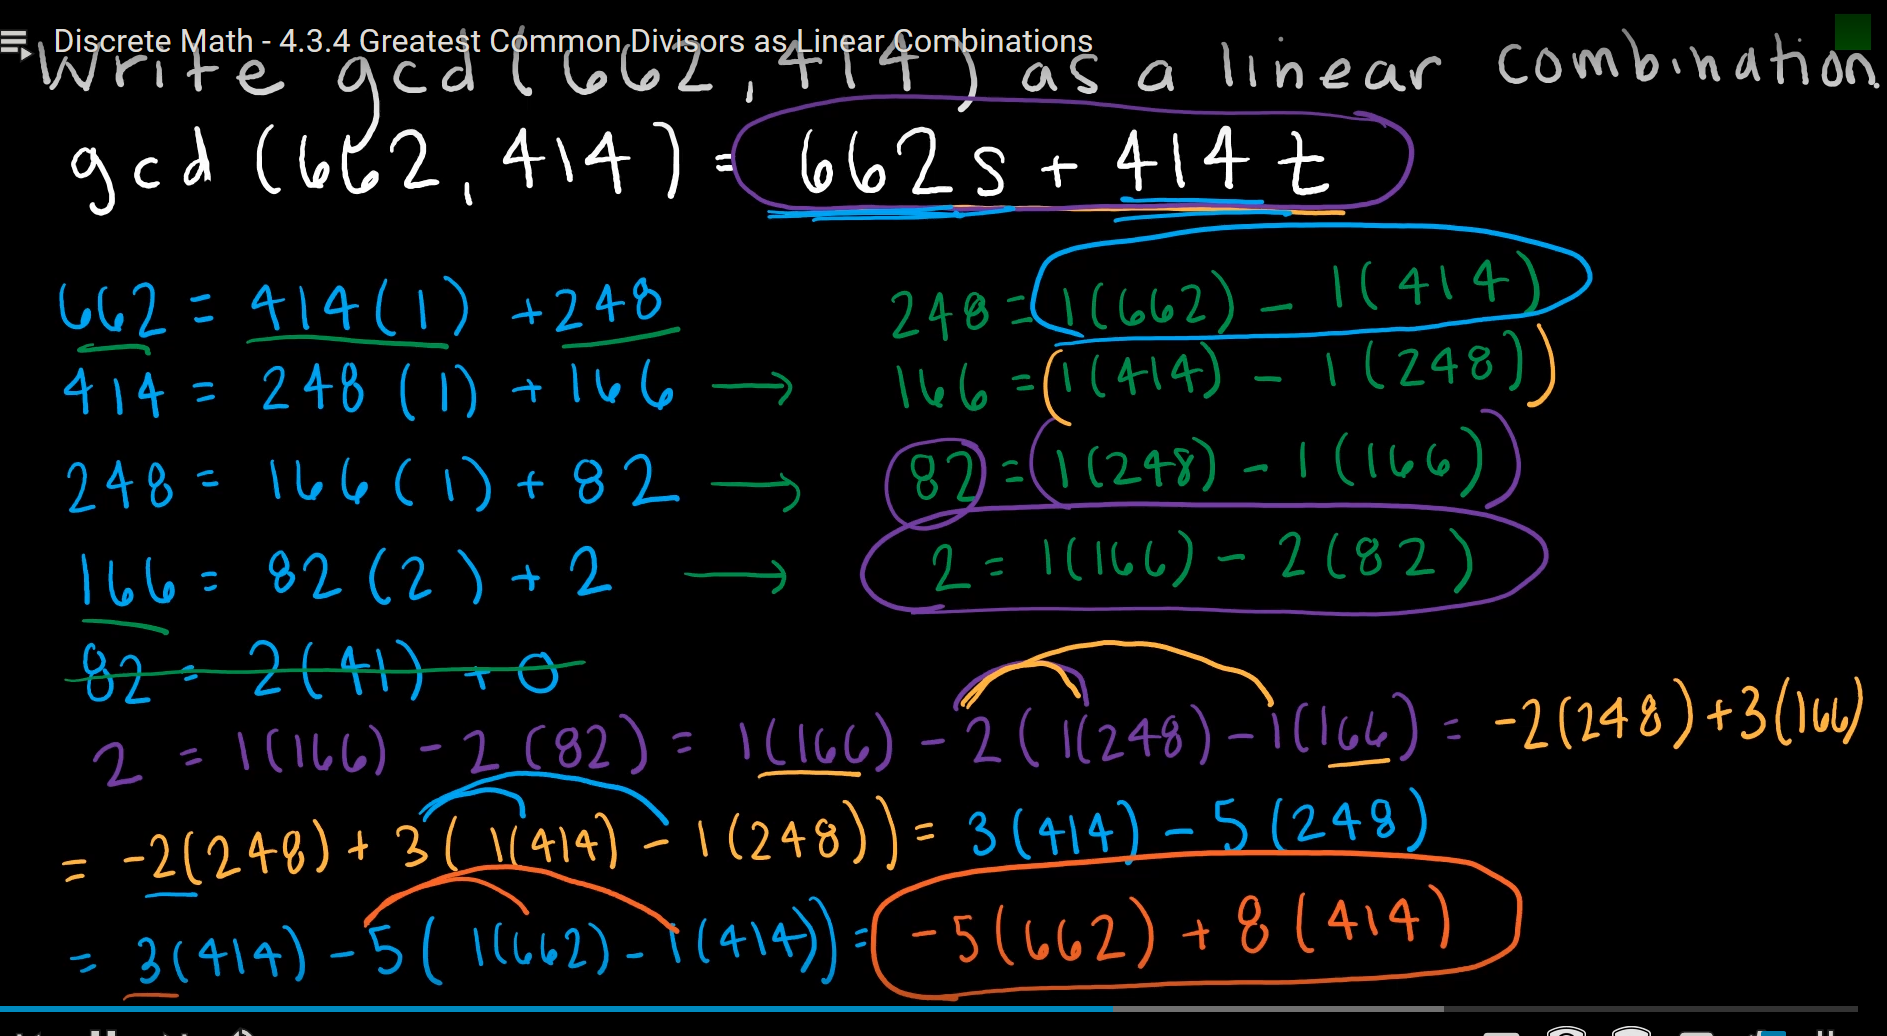 Discrete Math - 4.3.4 Greatest Common Divisors as Linear Combinations
Write gcd(662, 414) as a linear combination.
gcd (662, 414) = 662s + 414t
662 = 414(1) + 248 248 = 1(662) - 1(414)
414 = 248 (1) + 166 → 166 = (1(414) - 1(248))
248 = 166(1) + 82 → 82 = (1(248) - 1(166))
166 = 82(2) + 2 → 2 = 1(166) - 2(82)
82 = 2(41) + 0
2 = 1(166) - 2(82) = 1(166) - 2(1(248) - 1(166)) = -2(248) + 3(166)
= -2(248) + 3(1(414) - 1(248)) = 3(414) - 5(248)
= 3(414) - 5(1(662) - 1(414)) = -5(662) + 8(414)